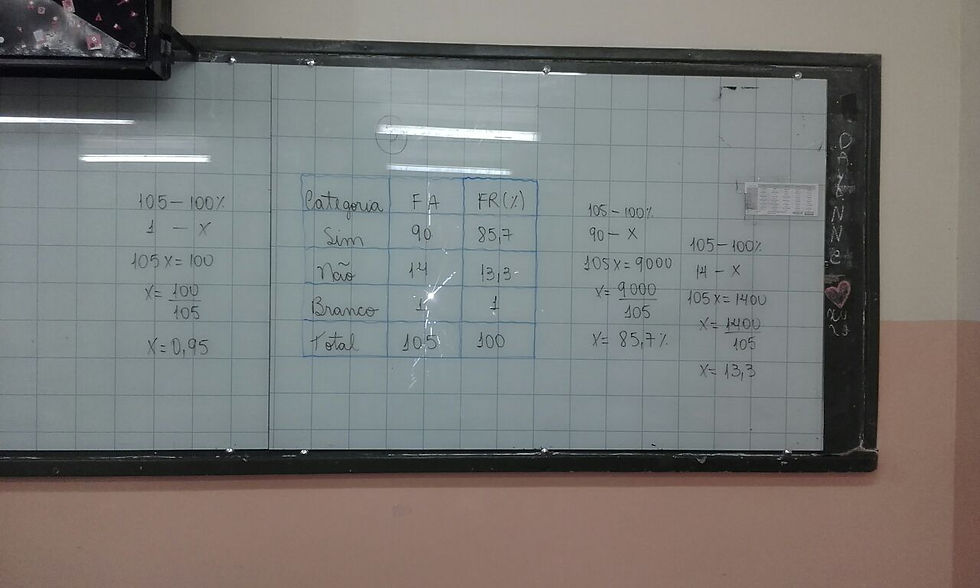 105-100%
1 - x
105x=100
x=100
105
x=0,95
Categoria FA FR(%)
Sim 90 85,7
Não 14 13,3
Branco 1 1
Total 105 100
105-100%
90-x
105x=9000
x=9000
105
x=85,7%
105-100%
14-x
105x=1400
x=1400
105
x=13,3